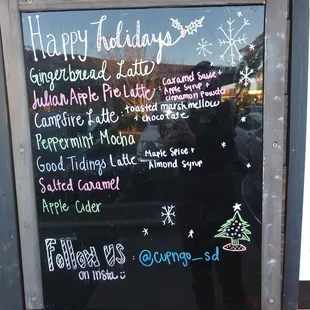 Happy holidays
Gingerbread Latte
Julian Apple Pie Latte: Caramel Sauce +
Apple Syrup +
Cinnamon Powder
Campfire Latte: toasted marshmallow
+ chocolate
Peppermint Mocha
Good Tidings Latte: Maple Spice +
Almond Syrup
Salted Caramel
Apple Cider
Follow us : @cupngo_sd
on insta